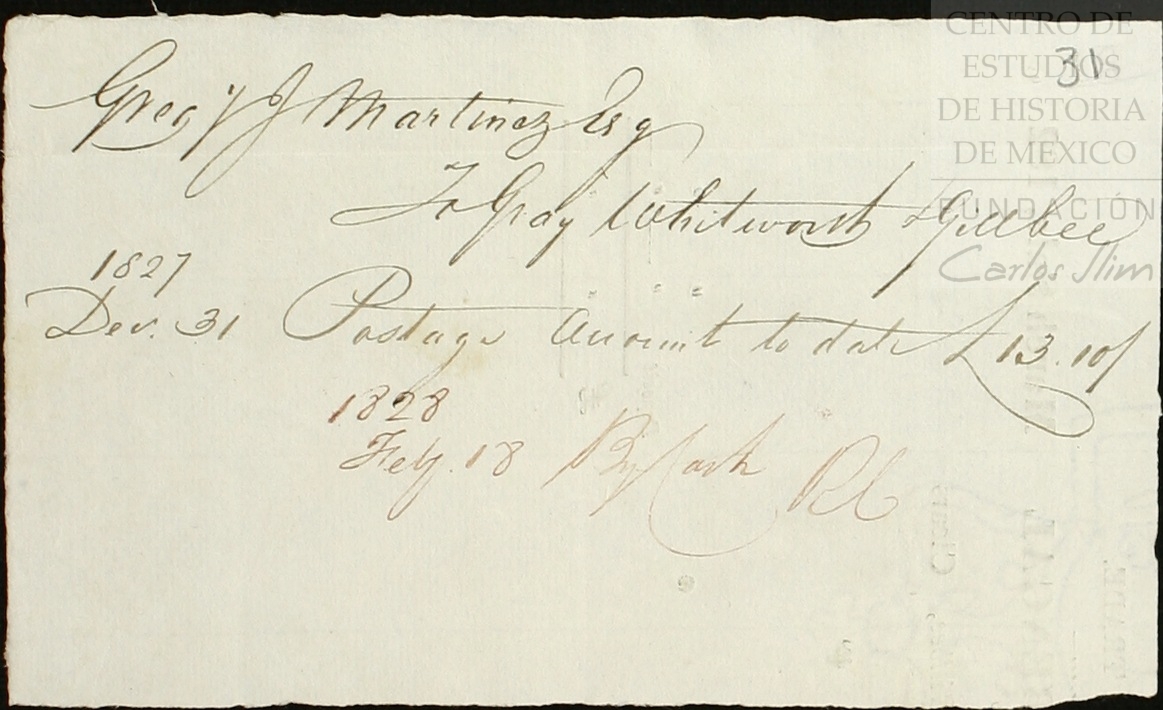 CENTRO DE
ESTUDIOS
DE HISTORIA
DE MÉXICO
FUNDACIÓN
Carlos Slim
31
Gregy J Martinez Esq
To Gray Whitworth & Gillbee
1827
Dec. 31 Postage Account to date £13.10/
1828
Feby. 18 By Cash